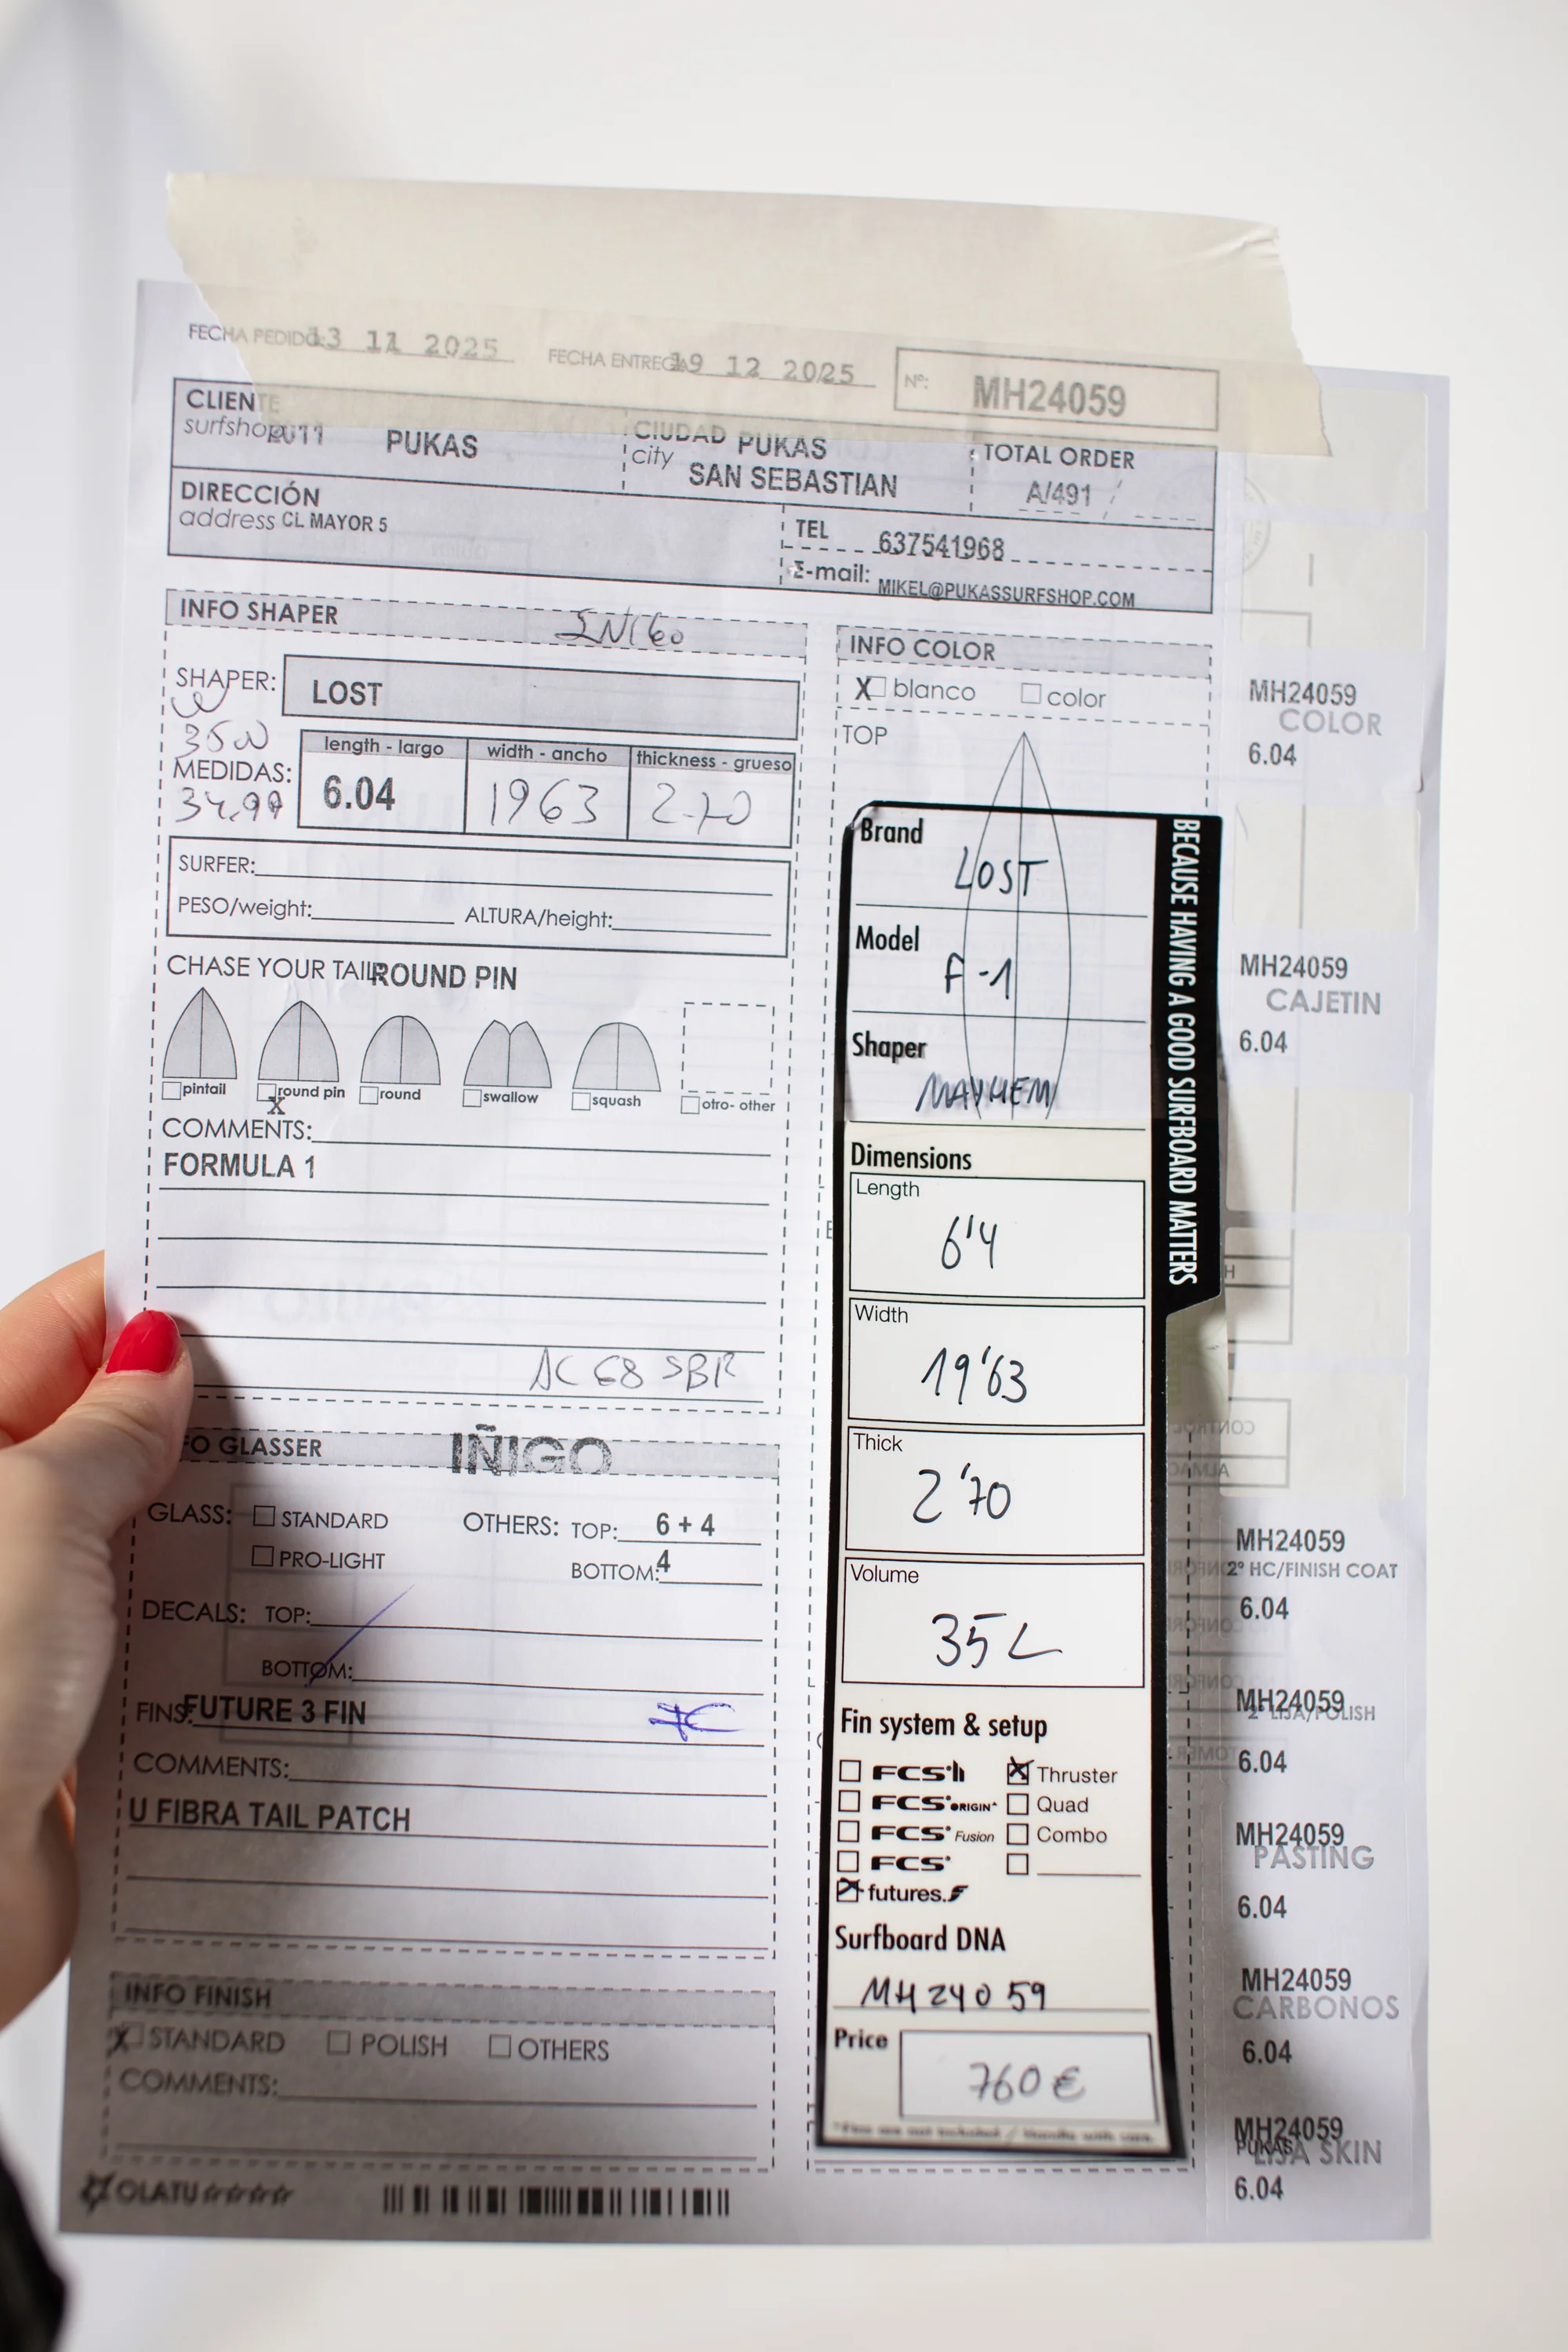 FECHA PEDIDO: 13 11 2025 FECHA ENTREGA 19 12 2025 Nº: MH24059
CLIENTE
surfshop PUKAS
CIUDAD PUKAS
city SAN SEBASTIAN
TOTAL ORDER
A/491 /
DIRECCIÓN
address CL MAYOR 5
TEL 637541968
E-mail: MIKEL@PUKASSURFSHOP.COM
INFO SHAPER IÑIGO
SHAPER: LOST
35W
MEDIDAS:
34.99
length - largo width - ancho thickness - grueso
6.04 1963 2-70
SURFER:
PESO/weight: ALTURA/height:
CHASE YOUR TAIL: ROUND PIN
pintail X round pin round swallow squash otro- other
COMMENTS:
FORMULA 1
INFO GLASSER IÑIGO
GLASS: STANDARD OTHERS: TOP: 6 + 4
PRO-LIGHT BOTTOM: 4
DECALS: TOP:
BOTTOM:
FINS: FUTURE 3 FIN
COMMENTS:
U FIBRA TAIL PATCH
INFO FINISH
X STANDARD POLISH OTHERS
COMMENTS:
OLATU
INFO COLOR
X blanco color
TOP
Brand
LOST
Model
F-1
Shaper
MAYHEM
Dimensions
Length
6'4
Width
19'63
Thick
2'70
Volume
35L
Fin system & setup
FCS II X Thruster
FCS ORIGIN Quad
FCS Fusion Combo
FCS
X futures.
Surfboard DNA
MH24059
Price
760 €
*Fins are not included / Handle with care.
BECAUSE HAVING A GOOD SURFBOARD MATTERS
MH24059
COLOR
6.04
MH24059
CAJETIN
6.04
MH24059
2º HC/FINISH COAT
6.04
MH24059
2º LIJA/POLISH
6.04
MH24059
PASTING
6.04
MH24059
CARBONOS
6.04
MH24059
PUKAS
LIJA SKIN
6.04